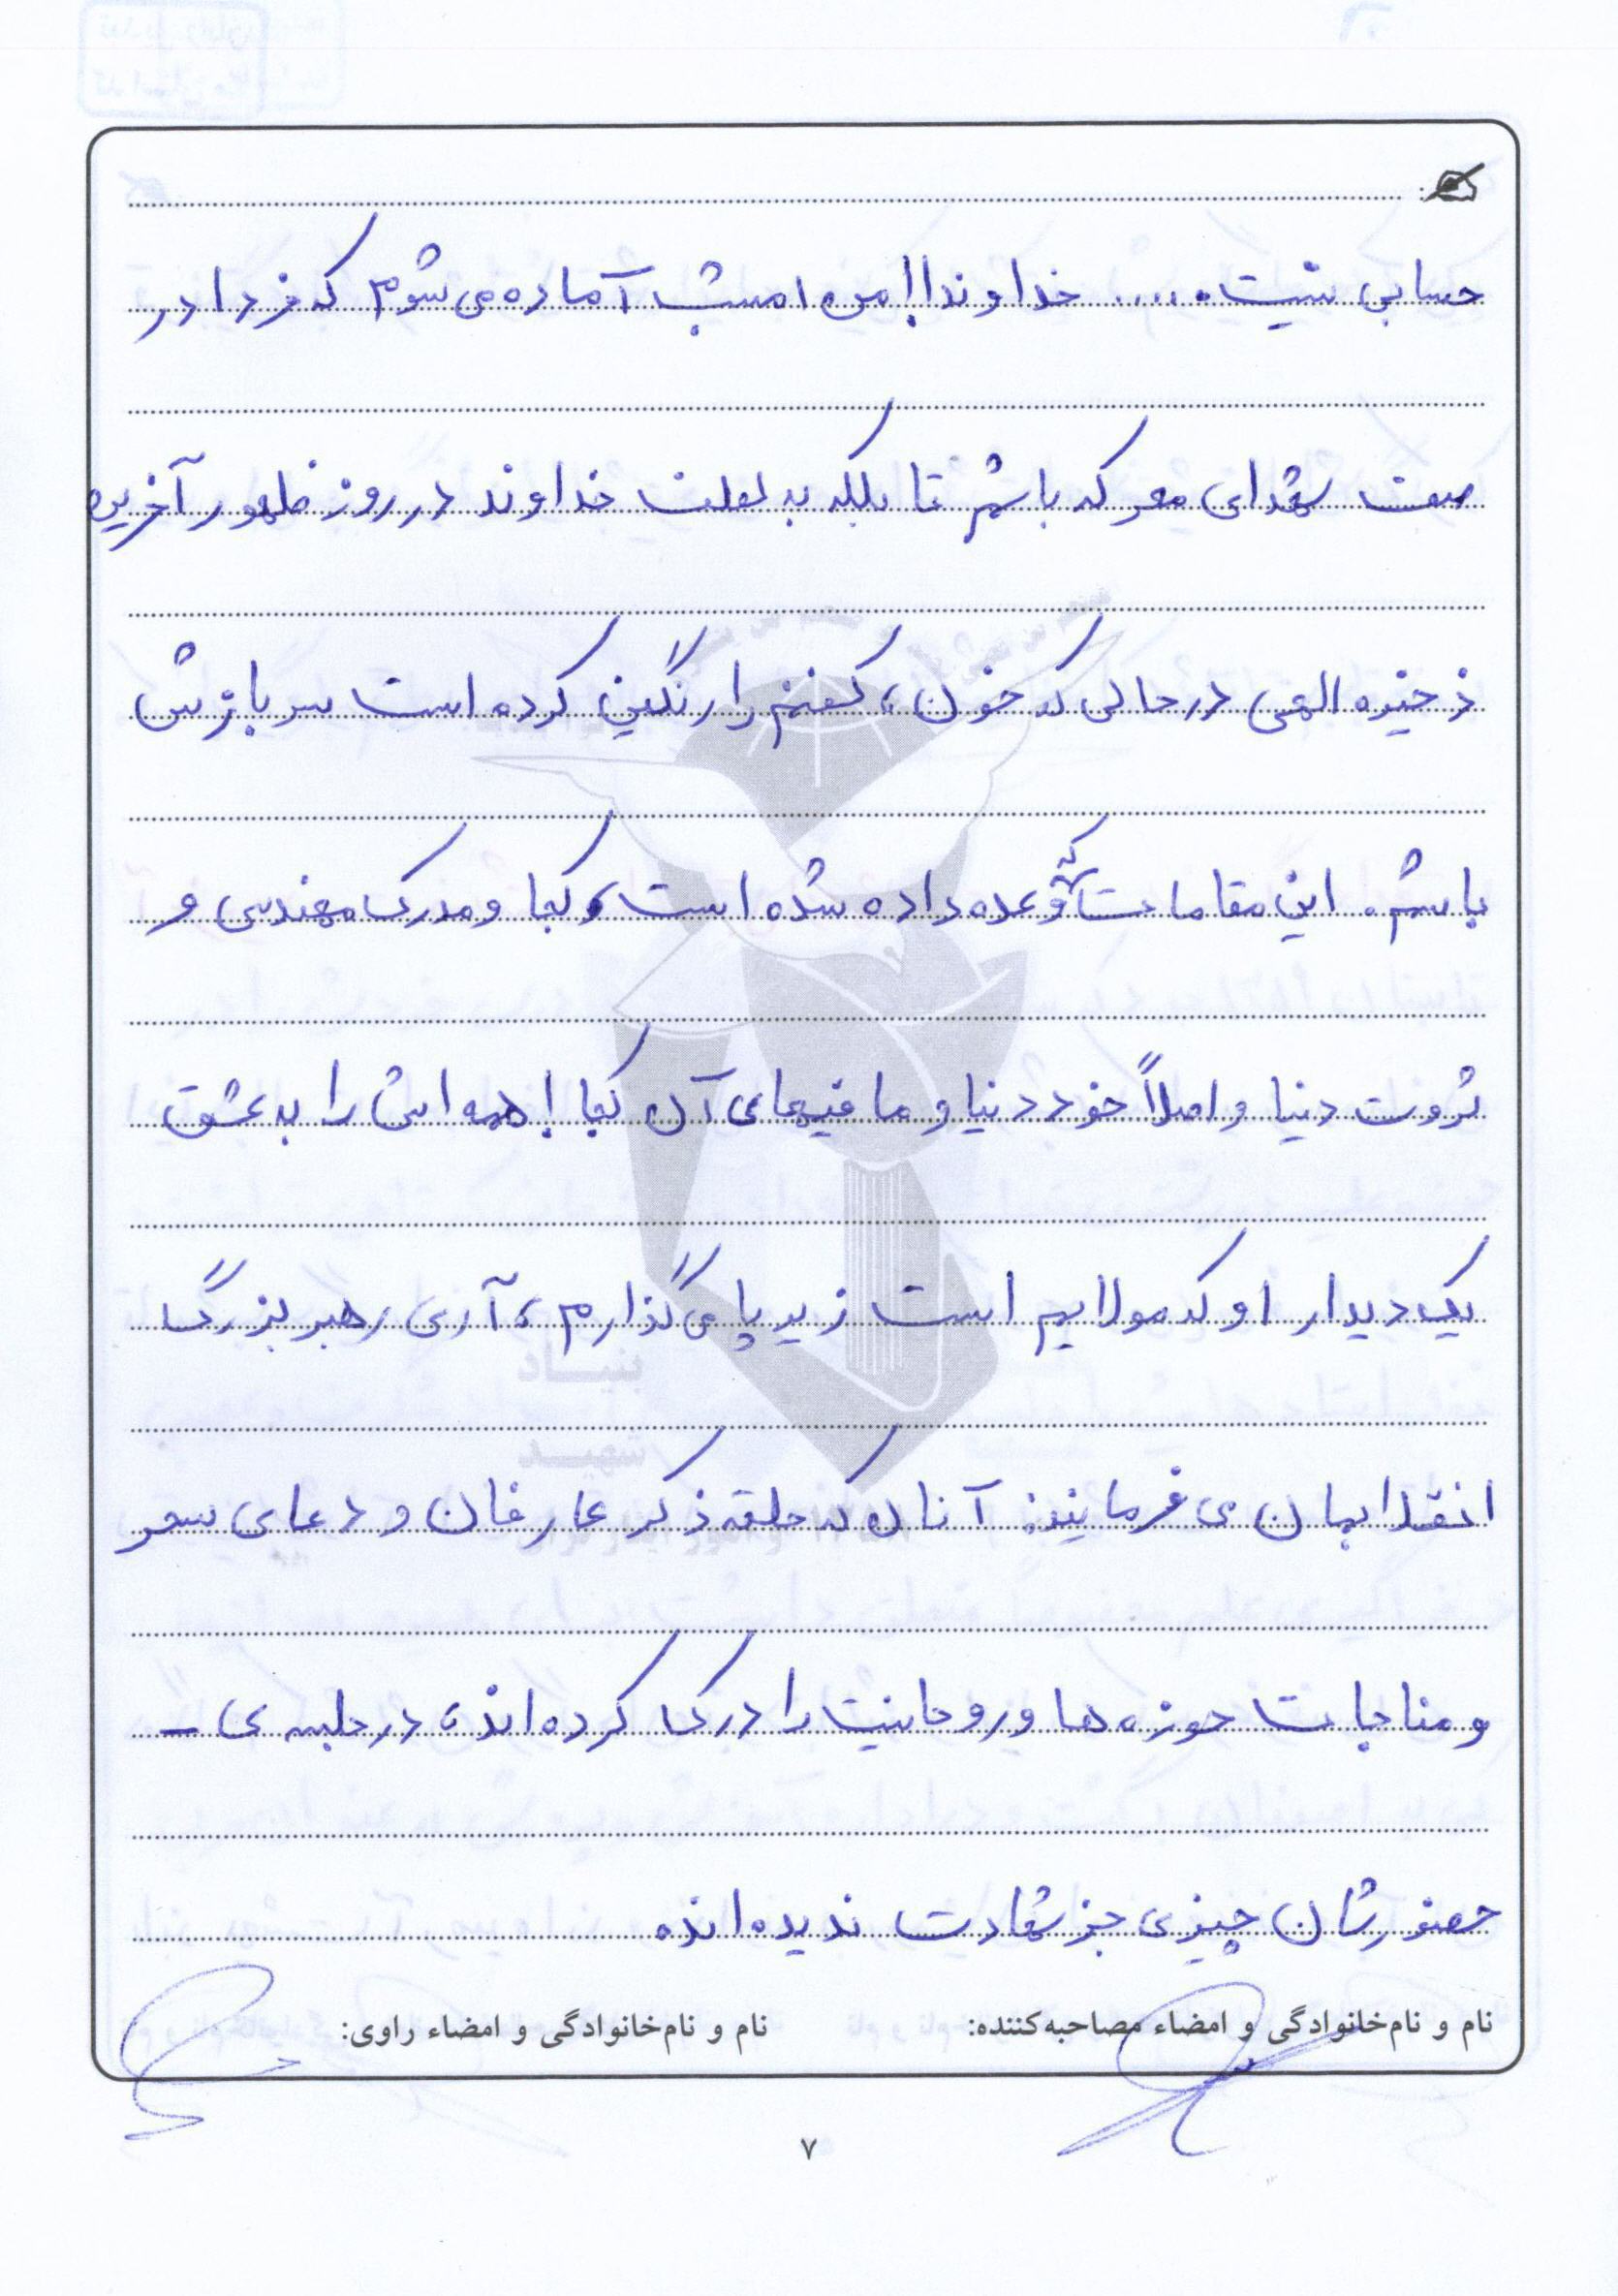 حسابی نیست. .... خداوندا! من امشب آماده می شوم که فردا در
صف شهدای معرکه باشم تا بلکه به لطف خداوند در روز ظهور آخرین
ذخیره الهی در حالی که خون، کفنم را رنگین کرده است سربازش
باشم. این مقامات که وعده داده شده است، کجا و مدرک مهندسی و
ثروت دنیا و اصلاً خود دنیا و ما فیهای آن کجا! همه اش را به عشق
یک دیدار او که مولایم است زیر پا می گذارم، آری رهبر بزرگ
انقلابمان می فرمایند: آنان که حلقه ذکر عارفان و دعای سحر
و مناجات حوزه ها و روحانیت را درک کرده اند، در جلسه ی -
حضورشان چیزی جز شهادت ندیده اند.
نام و نام‌خانوادگی و امضاء مصاحبه‌کننده: نام و نام‌خانوادگی و امضاء راوی:
۷